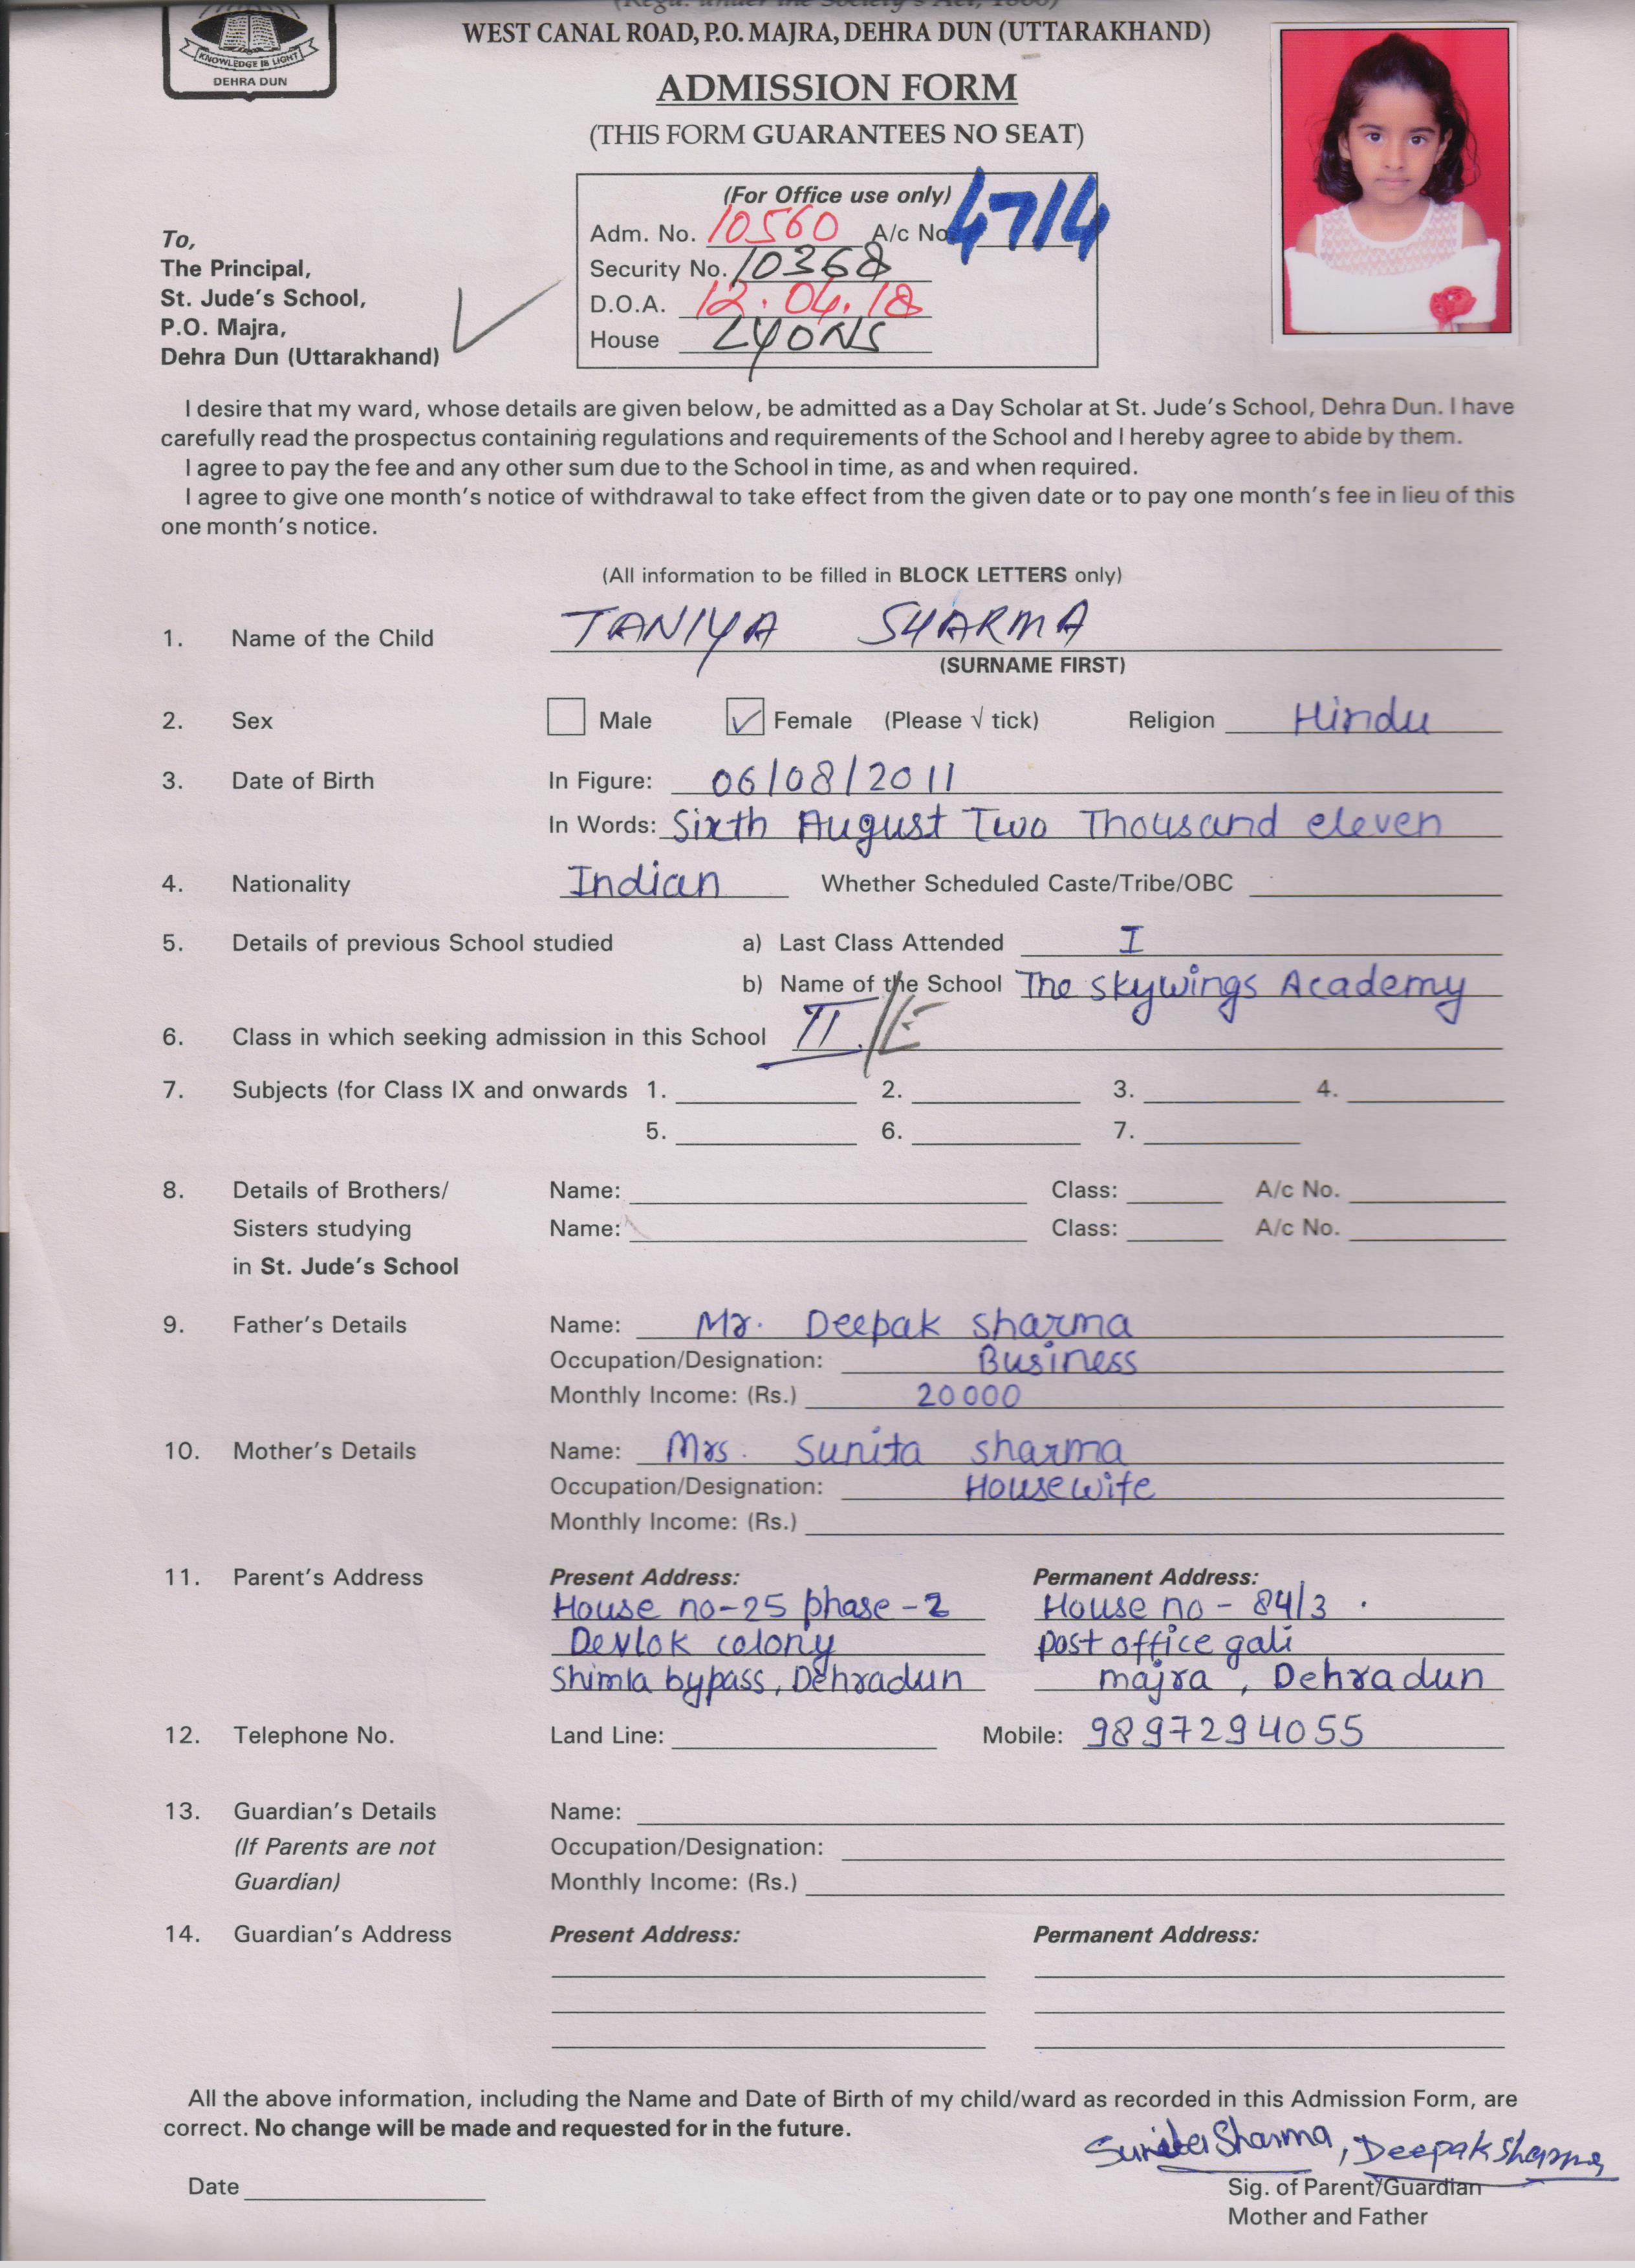 (Regd. under the Society's Act, 1860)
WEST CANAL ROAD, P.O. MAJRA, DEHRA DUN (UTTARAKHAND)
KNOWLEDGE IS LIGHT
DEHRA DUN
ADMISSION FORM
(THIS FORM GUARANTEES NO SEAT)
(For Office use only)
Adm. No. 10560 A/c No 4714
Security No. 10368
D.O.A. 12.04.18
House LYONS
To,
The Principal,
St. Jude's School,
P.O. Majra,
Dehra Dun (Uttarakhand)
I desire that my ward, whose details are given below, be admitted as a Day Scholar at St. Jude's School, Dehra Dun. I have
carefully read the prospectus containing regulations and requirements of the School and I hereby agree to abide by them.
I agree to pay the fee and any other sum due to the School in time, as and when required.
I agree to give one month's notice of withdrawal to take effect from the given date or to pay one month's fee in lieu of this
one month's notice.
(All information to be filled in BLOCK LETTERS only)
1. Name of the Child TANIYA SHARMA
(SURNAME FIRST)
2. Sex Male Female (Please √ tick) Religion Hindu
3. Date of Birth In Figure: 06/08/2011
In Words: Sixth August Two Thousand eleven
4. Nationality Indian Whether Scheduled Caste/Tribe/OBC
5. Details of previous School studied a) Last Class Attended I
b) Name of the School The skywings Academy
6. Class in which seeking admission in this School II/E
7. Subjects (for Class IX and onwards 1. 2. 3. 4.
5. 6. 7.
8. Details of Brothers/ Name: Class: A/c No.
Sisters studying Name: Class: A/c No.
in St. Jude's School
9. Father's Details Name: Mr. Deepak sharma
Occupation/Designation: Business
Monthly Income: (Rs.) 20000
10. Mother's Details Name: Mrs. Sunita sharma
Occupation/Designation: Housewife
Monthly Income: (Rs.)
11. Parent's Address Present Address: Permanent Address:
House no-25 phase-2 House no - 84/3 .
Devlok colony post office gali
Shimla bypass, Dehradun majra , Dehradun
12. Telephone No. Land Line: Mobile: 9897294055
13. Guardian's Details Name:
(If Parents are not Occupation/Designation:
Guardian) Monthly Income: (Rs.)
14. Guardian's Address Present Address: Permanent Address:
All the above information, including the Name and Date of Birth of my child/ward as recorded in this Admission Form, are
correct. No change will be made and requested for in the future.
Sunita Sharma, Deepak Sharma
Date Sig. of Parent/Guardian
Mother and Father